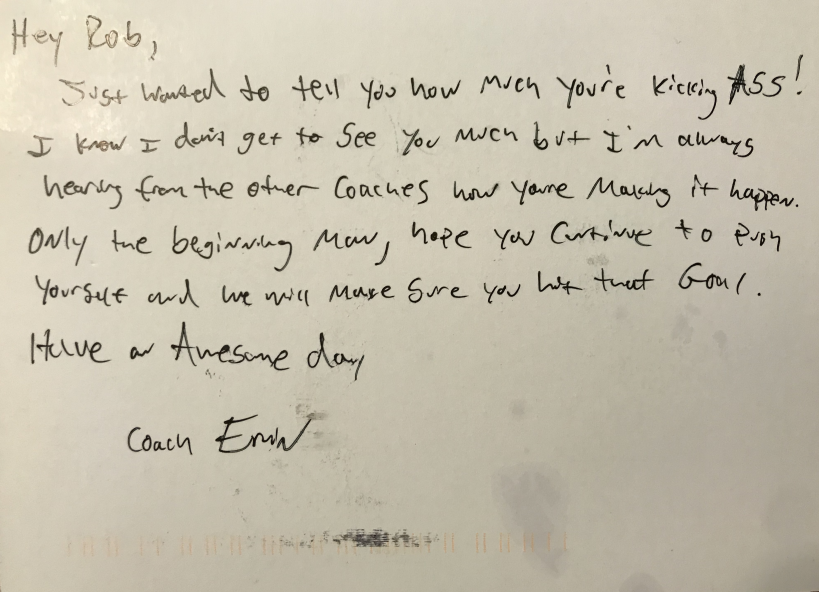 Hey Rob,
Just wanted to tell you how much you're kicking ASS!
I know I don't get to see you much but I'm always
hearing from the other Coaches how you're making it happen.
Only the beginning man, hope you continue to push
yourself and we will make sure you hit that Goal.
Have an Awesome day
Coach